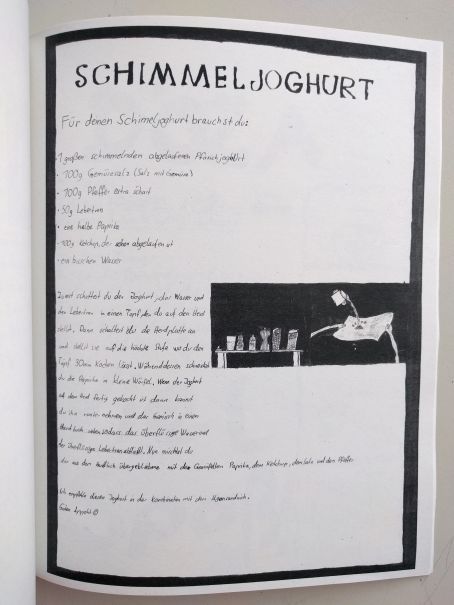 SCHIMMELJOGHURT
Für denen Schimeljoghurt brauchst du:
1 großen schimmelnden abgelaufenen Pfirsichjoghurt
• 100g Gemüsesalz (Salz mit Gemüse)
• 100g Pfeffer extra scharf
• 50g Lebertran
• eine halbe Paprika
• 100g Ketchup, der schon abgelaufen ist
• ein bisschen Wasser
Zuerst schüttest du den Joghurt, das Wasser und
den Lebertran in einen Topf den du auf den Herd
stellst. Dann schaltest du die Herdplatte an
und stellst sie auf die höchste Stufe wo du den
Topf 30min kochen lässt. Währenddessen schneidest
du die Paprika in kleine Würfel. Wenn der Joghurt
auf dem Herd fertig gekocht ist dann kannst
du ihn runter nehmen und das Gemisch in einen
das überflüssige Wasser und
der überflüssige Lebertran abfließt. Nun mischst du
das aus dem endlich übergebliebene mit den Paprika, dem Ketchup, dem Salz und dem Pfeffer
Ich empfehle diesen Joghurt in der Kombination mit dem
Guten Appetit